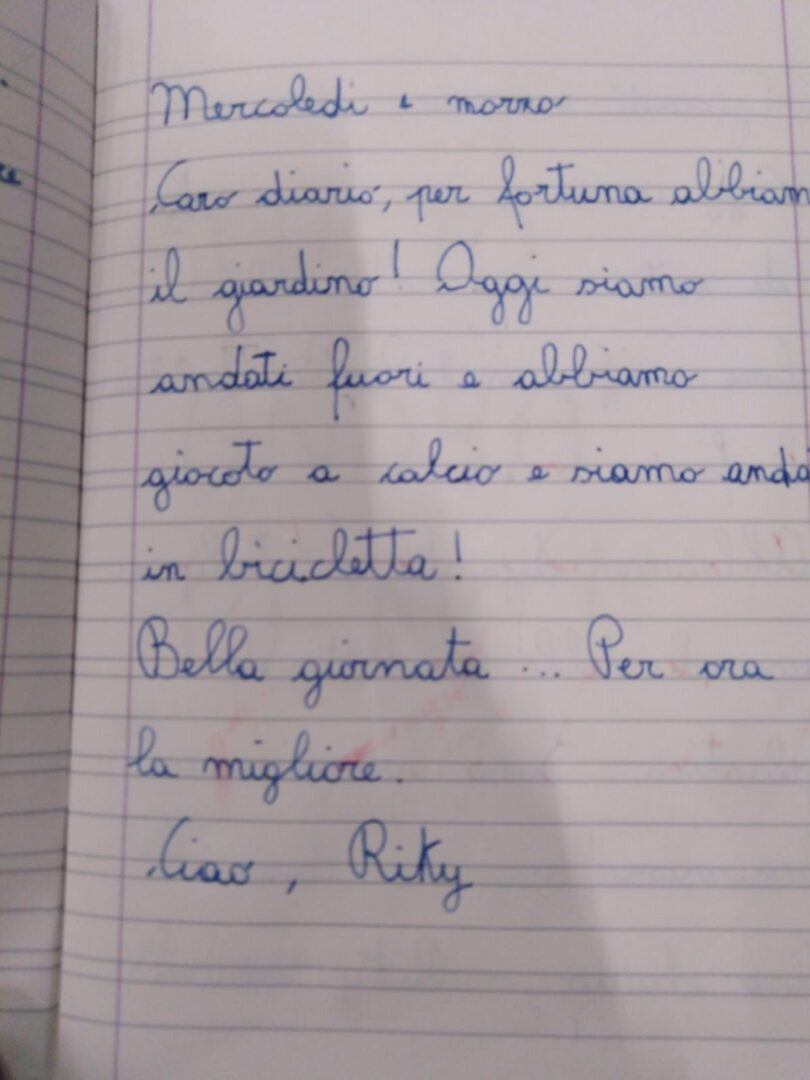 Mercoledì 4 marzo
Caro diario, per fortuna abbiam
il giardino! Oggi siamo
andati fuori e abbiamo
giocato a calcio e siamo anda
in bicicletta!
Bella giornata ... Per ora
la migliore.
Ciao, Riky